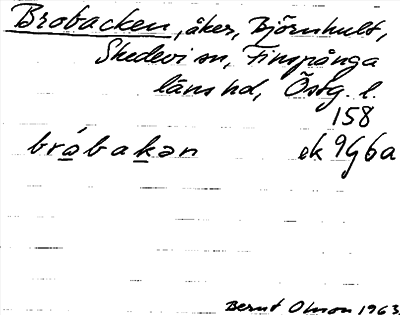 Brobacken, åker, Björnhult,
Skedevi sn, Finspånga
läns hd, Östg. l.
158
bró̱baḵən ek 9G6a
Bernt Olsson 1963.